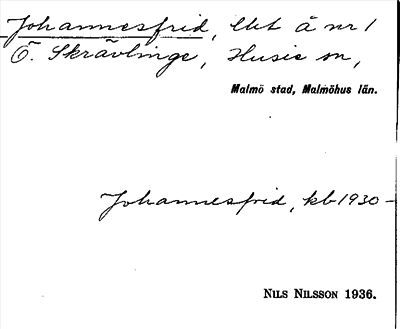 Johannesfrid, lht å nr 1
Ö. Skrävlinge, Husie sn,
Malmö stad, Malmöhus län.
Johannesfrid, kb 1930-
NILS NILSSON 1936.